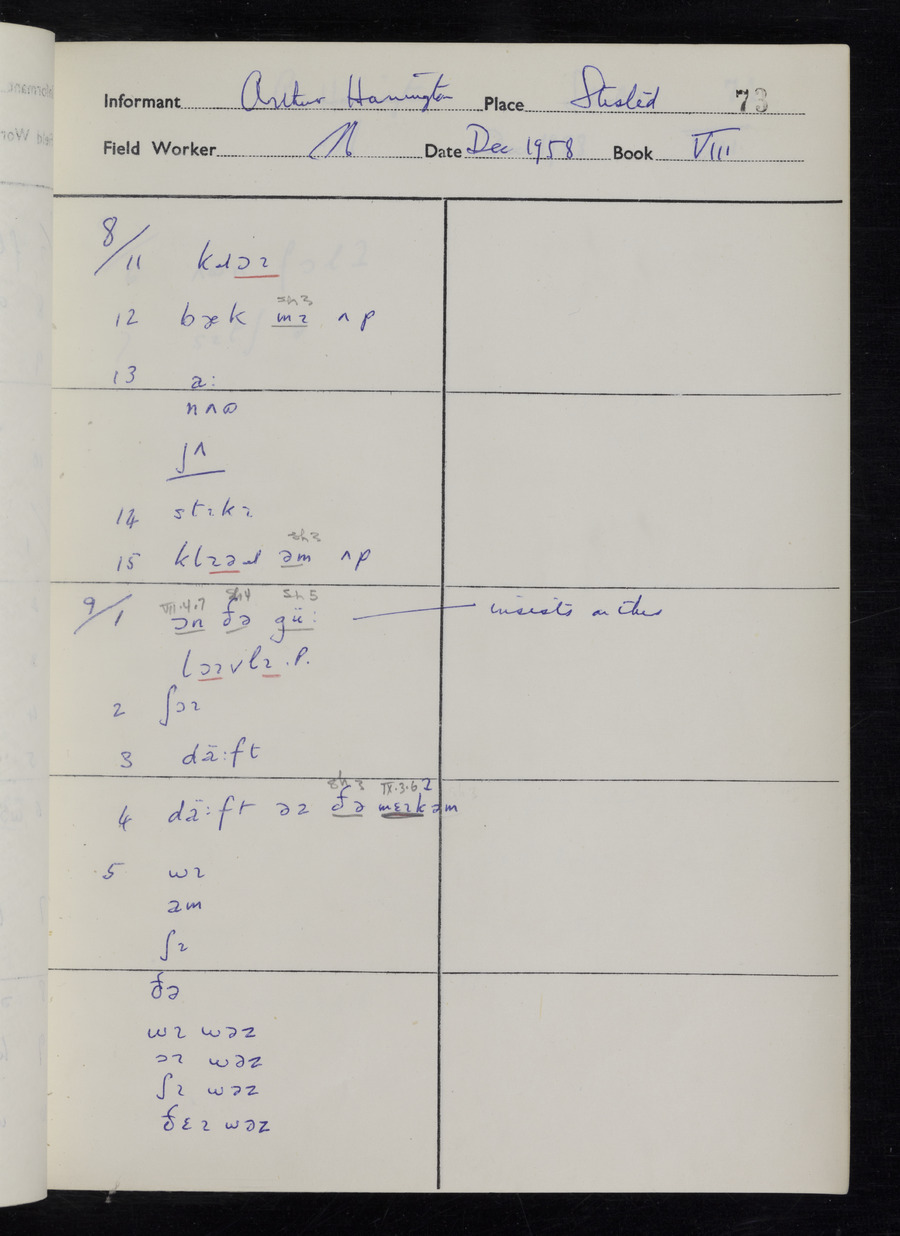 Informant Arthur Harrington Place Stisted 73
Field Worker Date Dec 1958 Book VIII
8/11 kɫɔɪ
sh3
12 bæk mɪ ʌp
13 a:
nʌʊ
ʃʌ
14 stɪkɪ
sh3
15 klɪəɫ əm ʌp
VII.4.7 sh4 sh5
9/1 ɔn ðə gü: insists on this
lɔɪvlɪ .P.
2 ʃɔɪ
3 dä:ft
sh3 IX.3.6
4 dä:ft əz ðə mɛɪkəm
5 wɪ
am
ʃɪ
ðə
wɪ wəz
ɔɪ wəz
ʃɪ wəz
ðɛɪ wəz